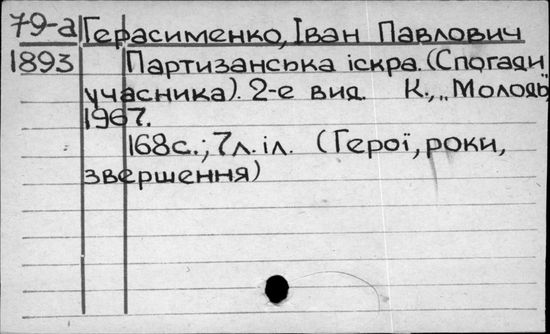 79-а Герасименко, Іван Павлович
1893 Партизанська іскра. (Спогади
учасника). 2-е вид. К., „Молодь",
1967.
168с.; 7л. іл. (Герої, роки,
звершення)